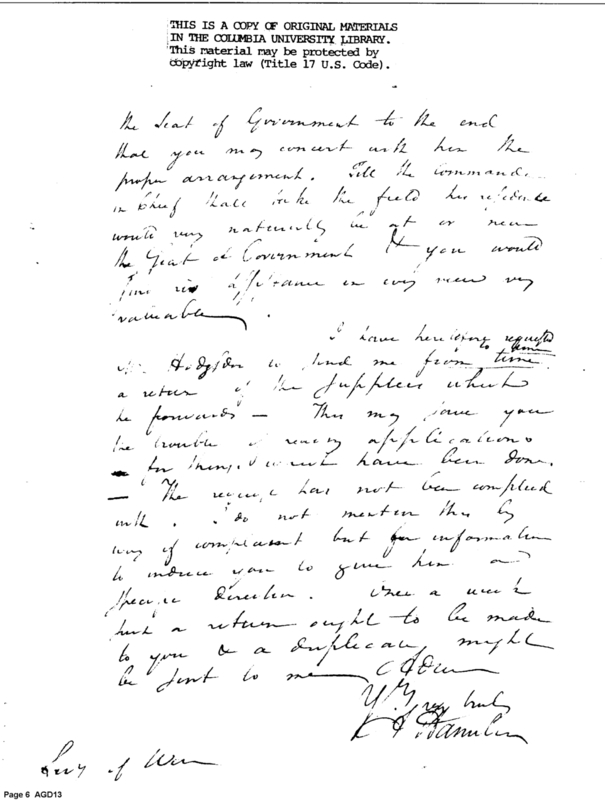 THIS IS A COPY OF ORIGINAL MATERIALS
IN THE COLUMBIA UNIVERSITY LIBRARY.
This material may be protected by
copyright law (Title 17 U.S. Code).
the Seat of Government to the end
that you may concert with him the
proper arrangement. Till the Commander
in Chief shall take the field his residence
would very naturally be at or near
the Seat of Government & you would
find his assistance in every view very
valuable.
I have heretofore requested
Mr Hodgson to send me from time to time
a return of the supplies which
he forwards — This may save you
the trouble of many applications
for things which have been done.
— The request has not been complied
with. I do not mention this by
way of complaint but for information
to induce you to give him a
specific direction. Once a week
such a return ought to be made
to you & a duplicate might
be sent to me
A Hamilton
Secy of War
Page 6 AGD13